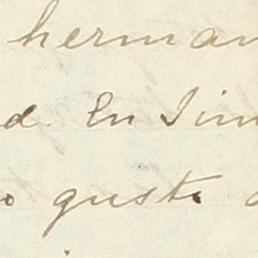 herman
d. En Sim
o gusto a